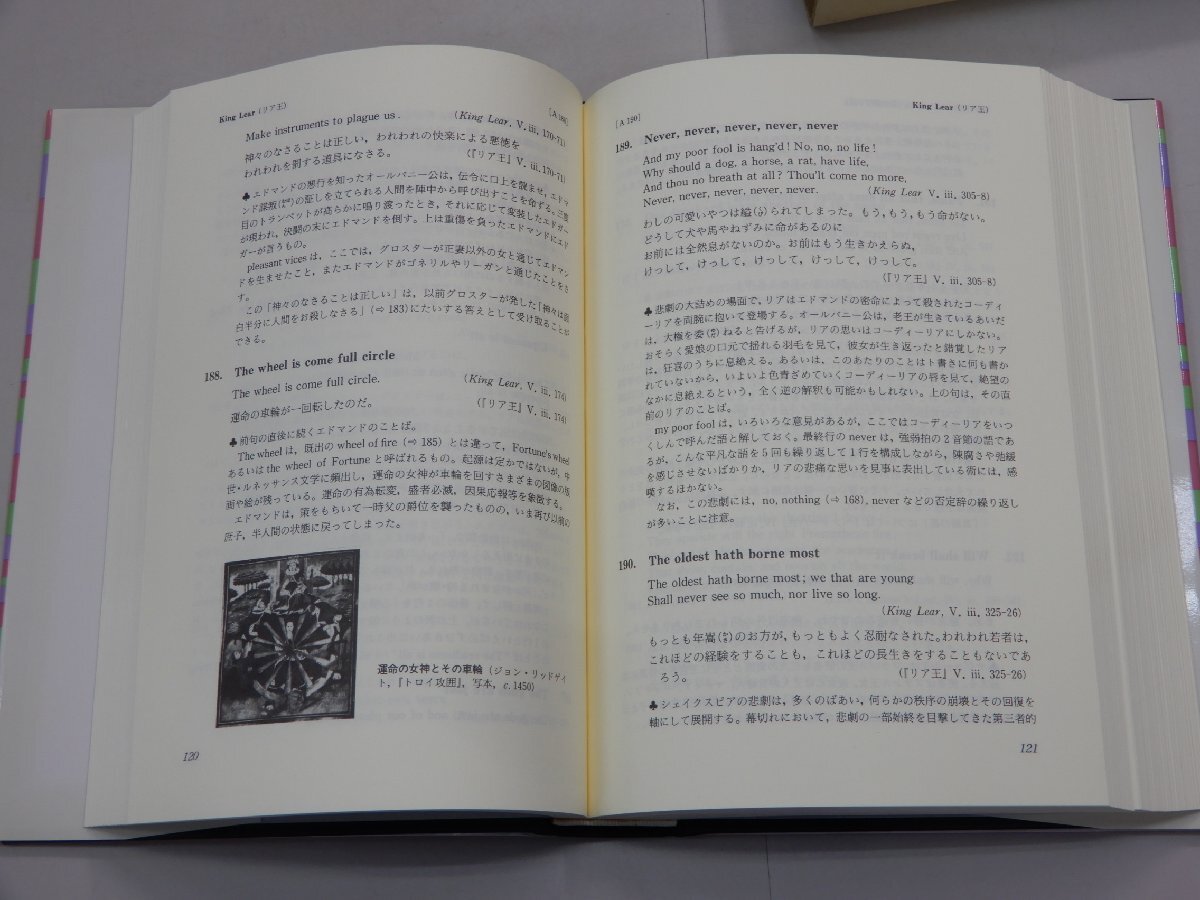 King Lear (リア王)
[A 188]
Make instruments to plague us.
(King Lear, V. iii. 170-71)
神々のなさることは正しい，われわれの快楽による悪徳を
われわれを罰する道具になさる。
(『リア王』V. iii. 170-71)
♣エドマンドの悪行を知ったオールバニー公は，伝令に口上を読ませ，エドマ
ンド謀叛(むほん)の証しを立てられる人間を陣中から呼び出すことを命ずる。三度
目のトランペットが高らかに鳴り渡ったとき，それに応じて変装したエドガー
が現われ，決闘の末にエドマンドを倒す。上は重傷を負ったエドマンドにエド
ガーが言うもの。
pleasant vices は，ここでは，グロスターが正妻以外の女と通じてエドマン
ドを生ませたこと，またエドマンドがゴネリルやリーガンと通じたことをさ
す。
この「神々のなさることは正しい」は，以前グロスターが発した「神々は面
白半分に人間をお殺しなさる」(⇨ 183)にたいする答えとして受け取ることが
できる。
188. The wheel is come full circle
The wheel is come full circle.
(King Lear, V. iii. 174)
運命の車輪が一回転したのだ。
(『リア王』V. iii. 174)
♣前句の直後に続くエドマンドのことば。
The wheel は，既出の wheel of fire (⇨ 185) とは違って，Fortune's wheel
あるいは the wheel of Fortune と呼ばれるもの。起源は定かではないが，中
世・ルネッサンス文学に頻出し，運命の女神が車輪を回すさまざまな図像の版
画や絵が残っている。運命の有為転変，盛者必滅，因果応報等を象徴する。
エドマンドは，策をもちいて一時父の爵位を襲ったものの，いま再び以前の
庶子，半人間の状態に戻ってしまった。
運命の女神とその車輪（ジョン・リッドゲイ
ト，『トロイ攻囲』，写本，c. 1450)
120
[A 190]
King Lear (リア王)
189. Never, never, never, never, never
And my poor fool is hang'd! No, no, no life!
Why should a dog, a horse, a rat, have life,
And thou no breath at all? Thou'lt come no more,
Never, never, never, never, never.
(King Lear V. iii. 305-8)
わしの可愛いやつは縊(くび)られてしまった。もう，もう，もう命がない。
どうして犬や馬やねずみに命があるのに
お前には全然息がないのか。お前はもう生きかえらぬ，
けっして，けっして，けっして，けっして，けっして。
(『リア王』V. iii. 305-8)
♣悲劇の大詰めの場面で，リアはエドマンドの密命によって殺されたコーディ
ーリアを両腕に抱いて登場する。オールバニー公は，老王が生きているあいだ
は，大権を委(ゆだ)ねると告げるが，リアの思いはコーディーリアにしかない。
おそらく愛娘の口元で揺れる羽毛を見て，彼女が生き返ったと錯覚したリア
は，狂喜のうちに息絶える。あるいは，このあたりのことはト書きに何も書か
れていないから，いよいよ色青ざめていくコーディーリアの唇を見て，絶望の
なかに息絶えるという，全く逆の解釈も可能かもしれない。上の句は，その直
前のリアのことば。
my poor fool は，いろいろな意見があるが，ここではコーディーリアをいつ
くしんで呼んだ語と解しておく。最終行の never は，強弱拍の2音節の語であ
るが，こんな平凡な語を5回も繰り返して1行を構成しながら，陳腐さや弛緩
を感じさせないばかりか，リアの悲痛な思いを見事に表出している術には，感
嘆するほかない。
なお，この悲劇には，no, nothing (⇨ 168), never などの否定辞の繰り返し
が多いことに注意。
190. The oldest hath borne most
The oldest hath borne most; we that are young
Shall never see so much, nor live so long.
(King Lear, V. iii. 325-26)
もっとも年嵩(かさ)のお方が，もっともよく忍耐なされた。われわれ若者は，
これほどの経験をすることも，これほどの長生きをすることもないであ
ろう。
(『リア王』V. iii. 325-26)
♣シェイクスピアの悲劇は，多くのばあい，何らかの秩序の崩壊とその回復を
軸にして展開する。幕切れにおいて，悲劇の一部始終を目撃してきた第三者的
121